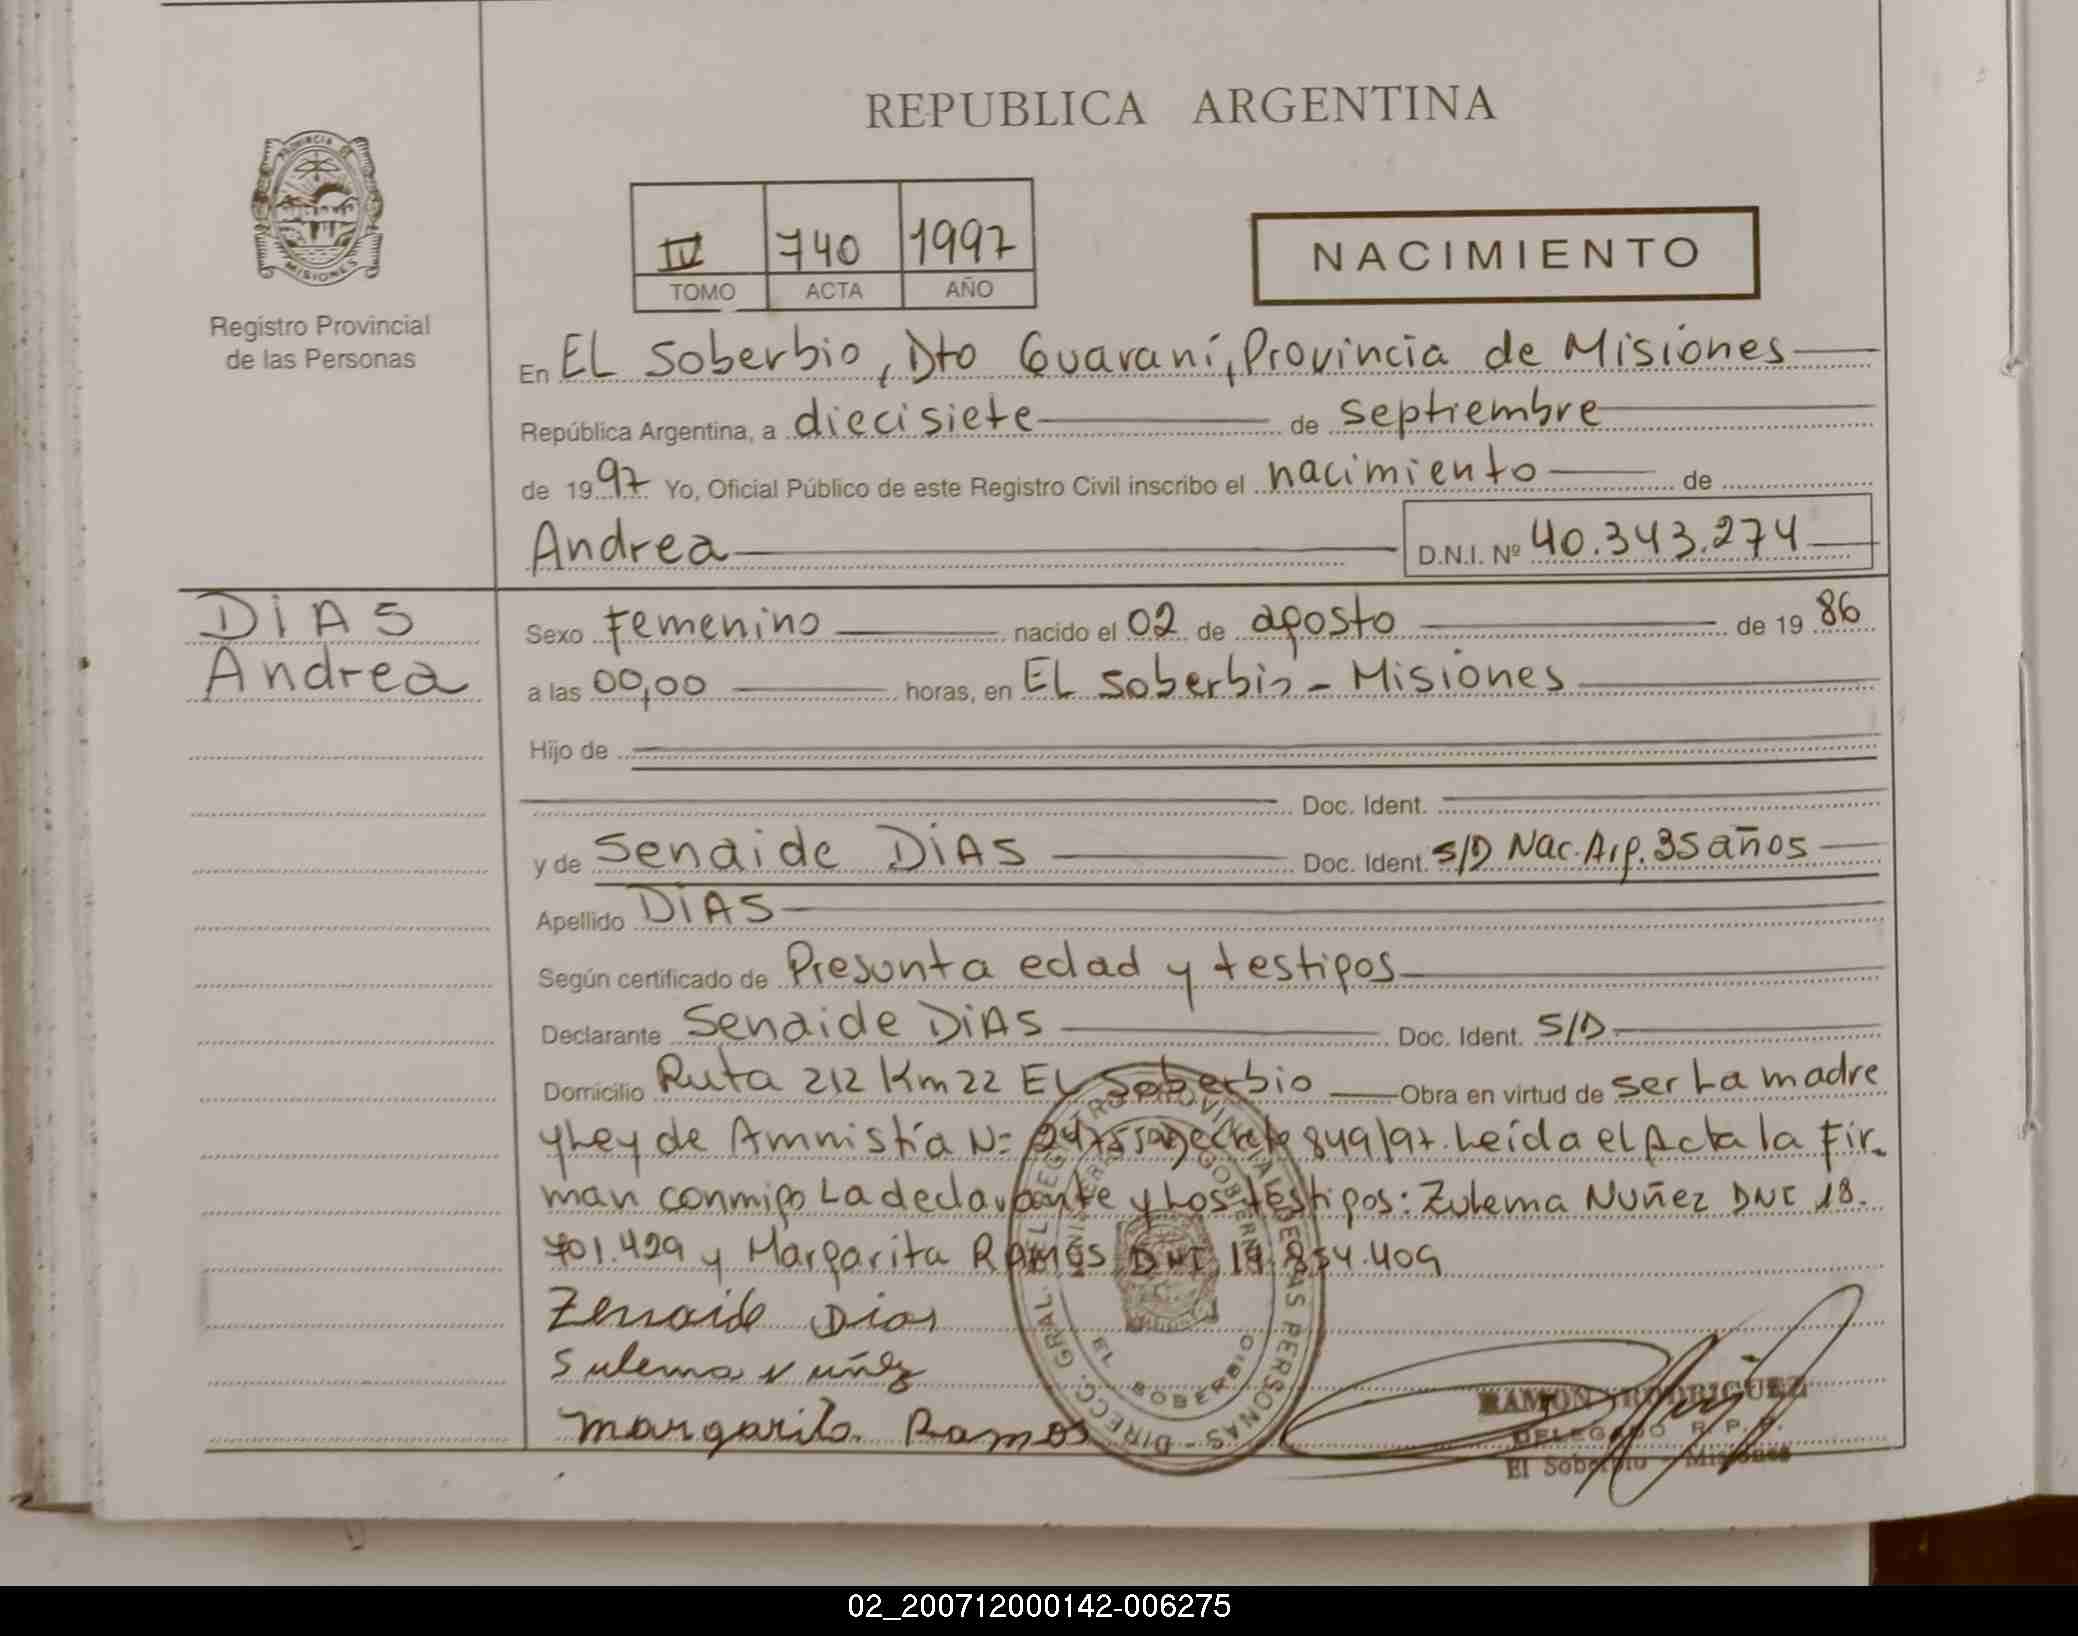 REPUBLICA ARGENTINA
PROVINCIA DE
MISIONES
Registro Provincial
de las Personas
IV 740 1997
TOMO ACTA AÑO
NACIMIENTO
En EL Soberbio, Dto Guaraní, Provincia de Misiones
República Argentina, a diecisiete de septiembre
de 1997 Yo, Oficial Público de este Registro Civil inscribo el nacimiento de
Andrea D.N.I. Nº 40.343.274
DIAS
Andrea
Sexo Femenino nacido el 02 de agosto de 1986
a las 00,00 horas, en EL Soberbio - Misiones
Hijo de
Doc. Ident.
y de Senaide DIAS Doc. Ident. S/D Nac. Arg. 35 años
Apellido DIAS
Según certificado de Presunta edad y testigos
Declarante Senaide DIAS Doc. Ident. S/D
Domicilio Ruta 212 Km 22 EL Soberbio Obra en virtud de ser La madre
y Ley de Amnistía N= Decreto 849/97. Leída el Acta la Fir-
man conmigo La declarante y Los testigos: Zulema Nuñez DNI 18.
701.429 y Margarita RAMOS DNI 14.854.409
Zenaide Dias
Sulema Nuñez
Margarita Ramos
DIRECC. GRAL. DEL REGISTRO PROVINCIAL DE LAS PERSONAS
SOBERBIO
RAMON RODRIGUEZ
DELEGADO R. P. P.
El Soberbio - Misiones
02_200712000142-006275